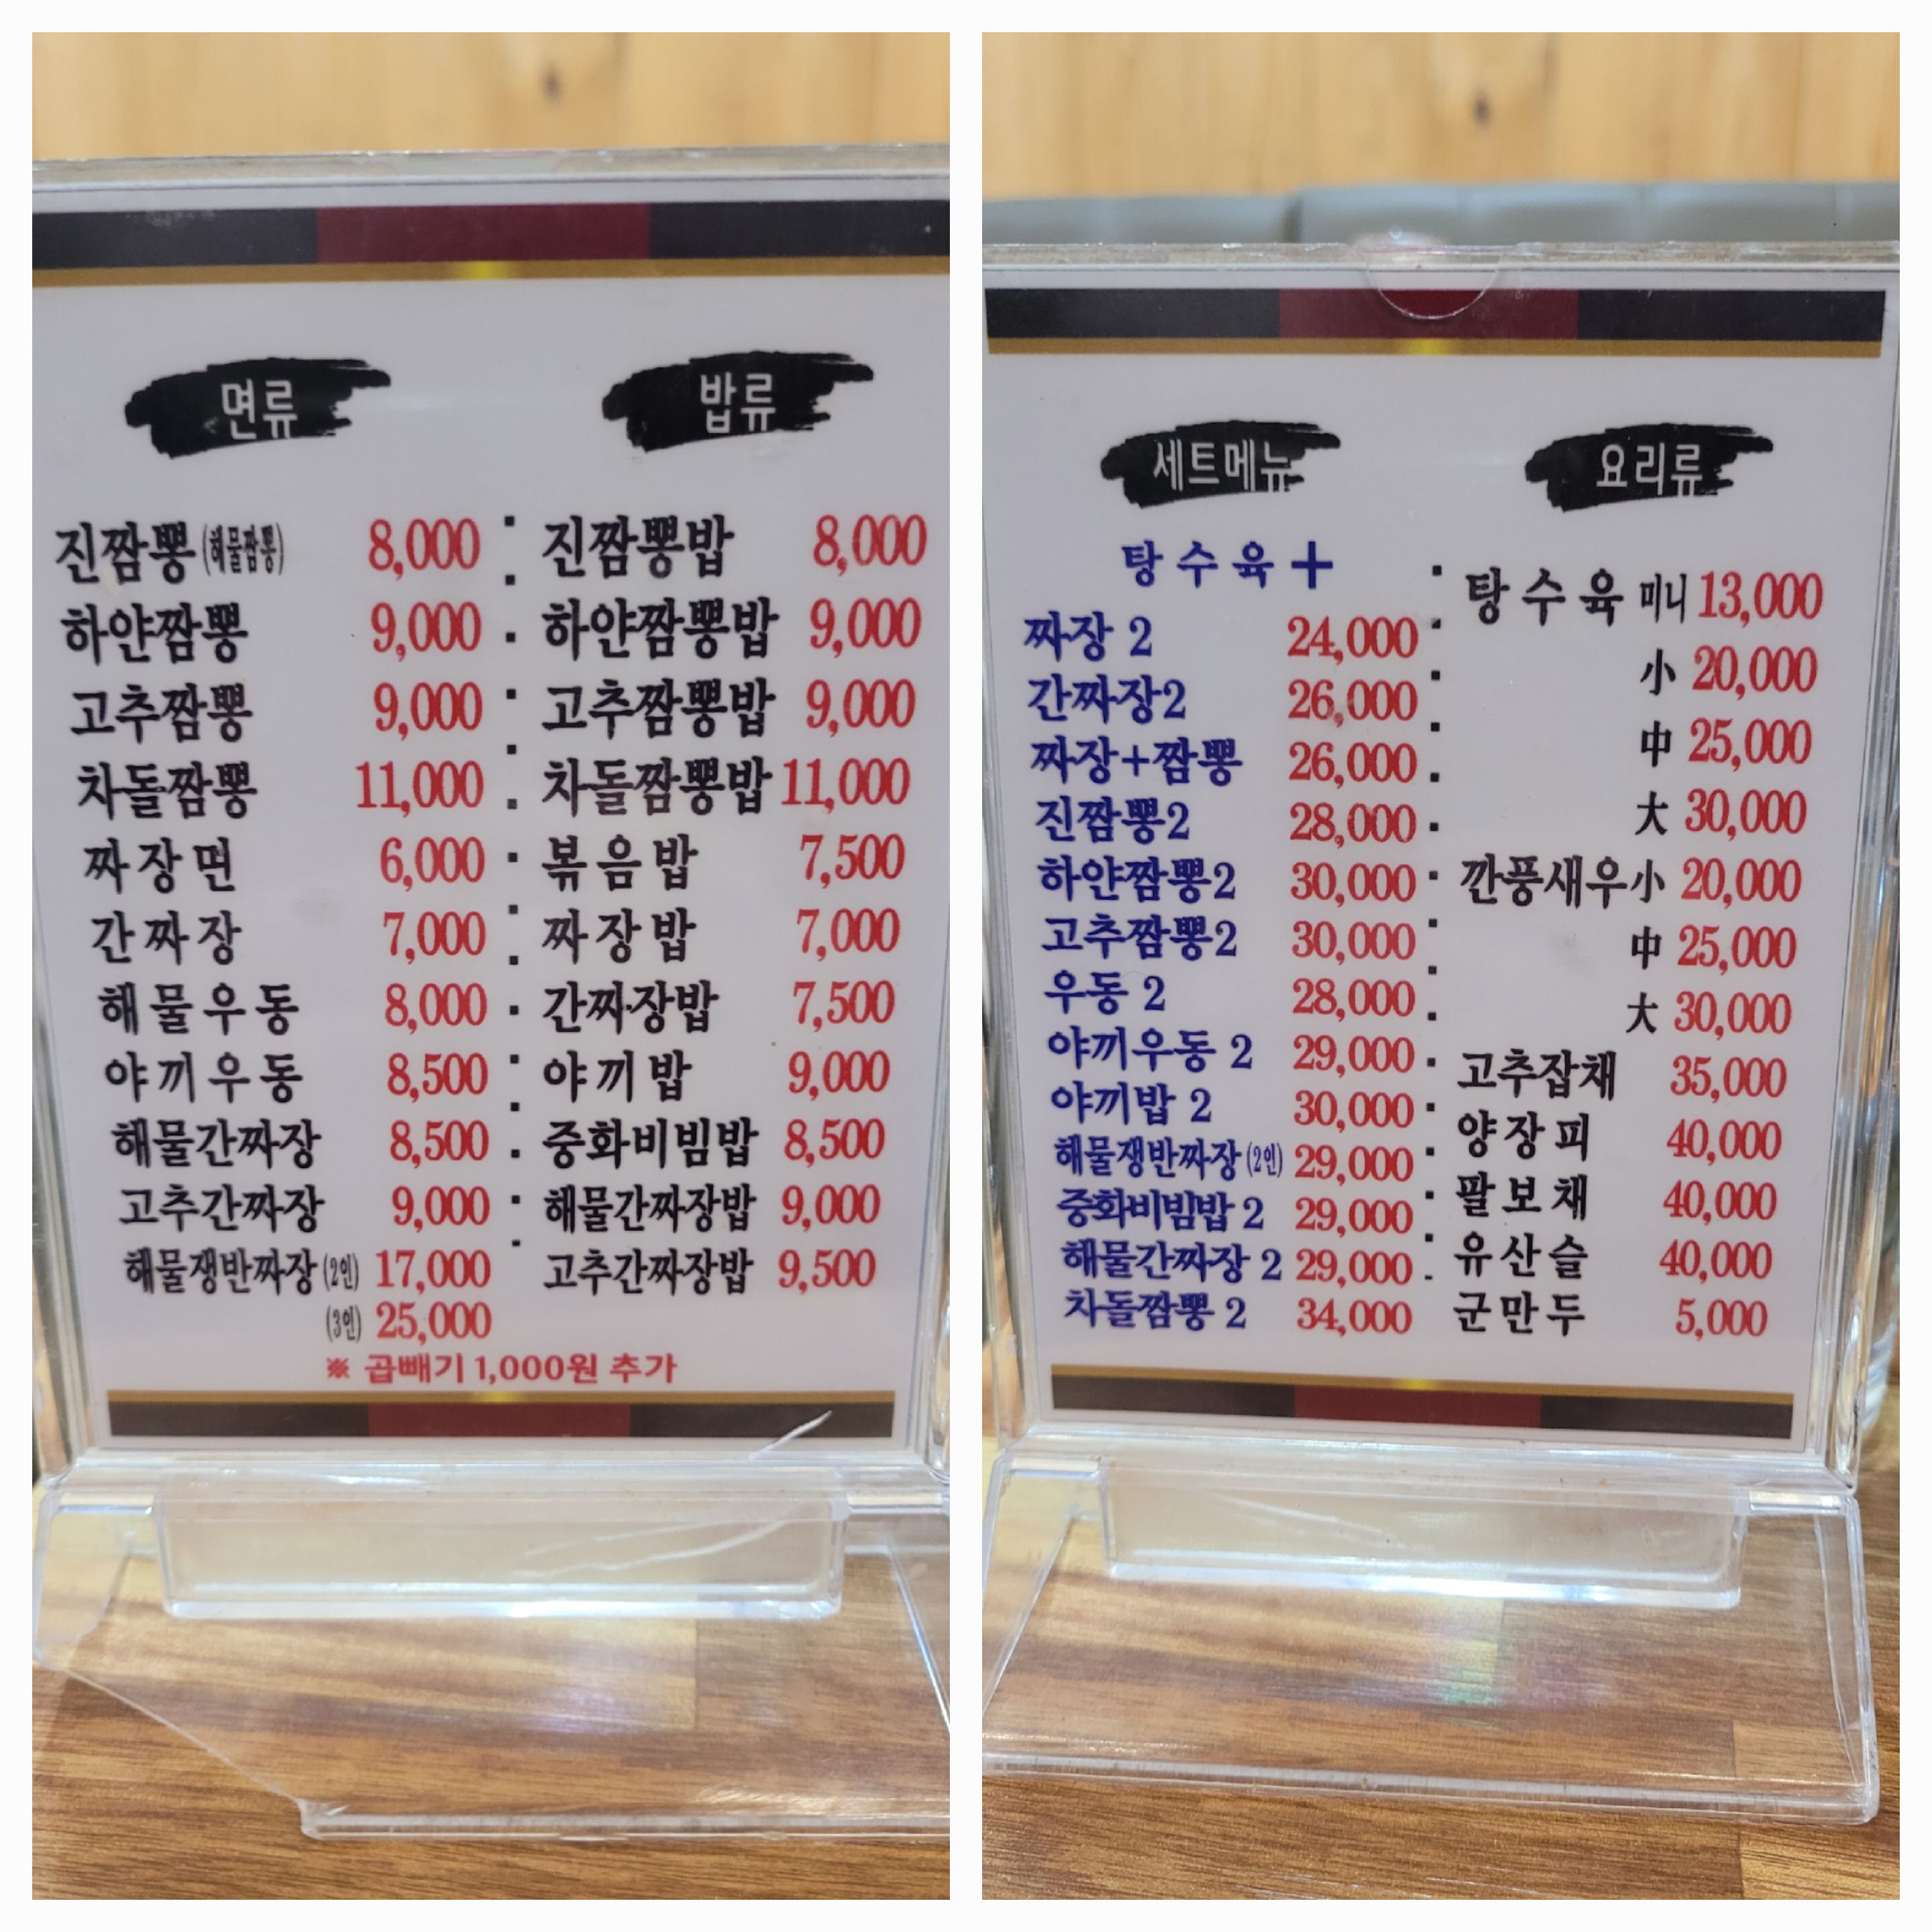 면류
진짬뽕 (해물짬뽕) 8,000
하얀짬뽕 9,000
고추짬뽕 9,000
차돌짬뽕 11,000
짜장면 6,000
간짜장 7,000
해물우동 8,000
야끼우동 8,500
해물간짜장 8,500
고추간짜장 9,000
해물쟁반짜장 (2인) 17,000
(3인) 25,000
밥류
진짬뽕밥 8,000
하얀짬뽕밥 9,000
고추짬뽕밥 9,000
차돌짬뽕밥 11,000
볶음밥 7,500
짜장밥 7,000
간짜장밥 7,500
야끼밥 9,000
중화비빔밥 8,500
해물간짜장밥 9,000
고추간짜장밥 9,500
※ 곱빼기 1,000원 추가
세트메뉴
탕수육+
짜장 2 24,000
간짜장2 26,000
짜장+짬뽕 26,000
진짬뽕2 28,000
하얀짬뽕2 30,000
고추짬뽕2 30,000
우동 2 28,000
야끼우동 2 29,000
야끼밥 2 30,000
해물쟁반짜장 (2인) 29,000
중화비빔밥 2 29,000
해물간짜장 2 29,000
차돌짬뽕 2 34,000
요리류
탕수육 미니 13,000
小 20,000
中 25,000
大 30,000
깐풍새우 小 20,000
中 25,000
大 30,000
고추잡채 35,000
양장피 40,000
팔보채 40,000
유산슬 40,000
군만두 5,000